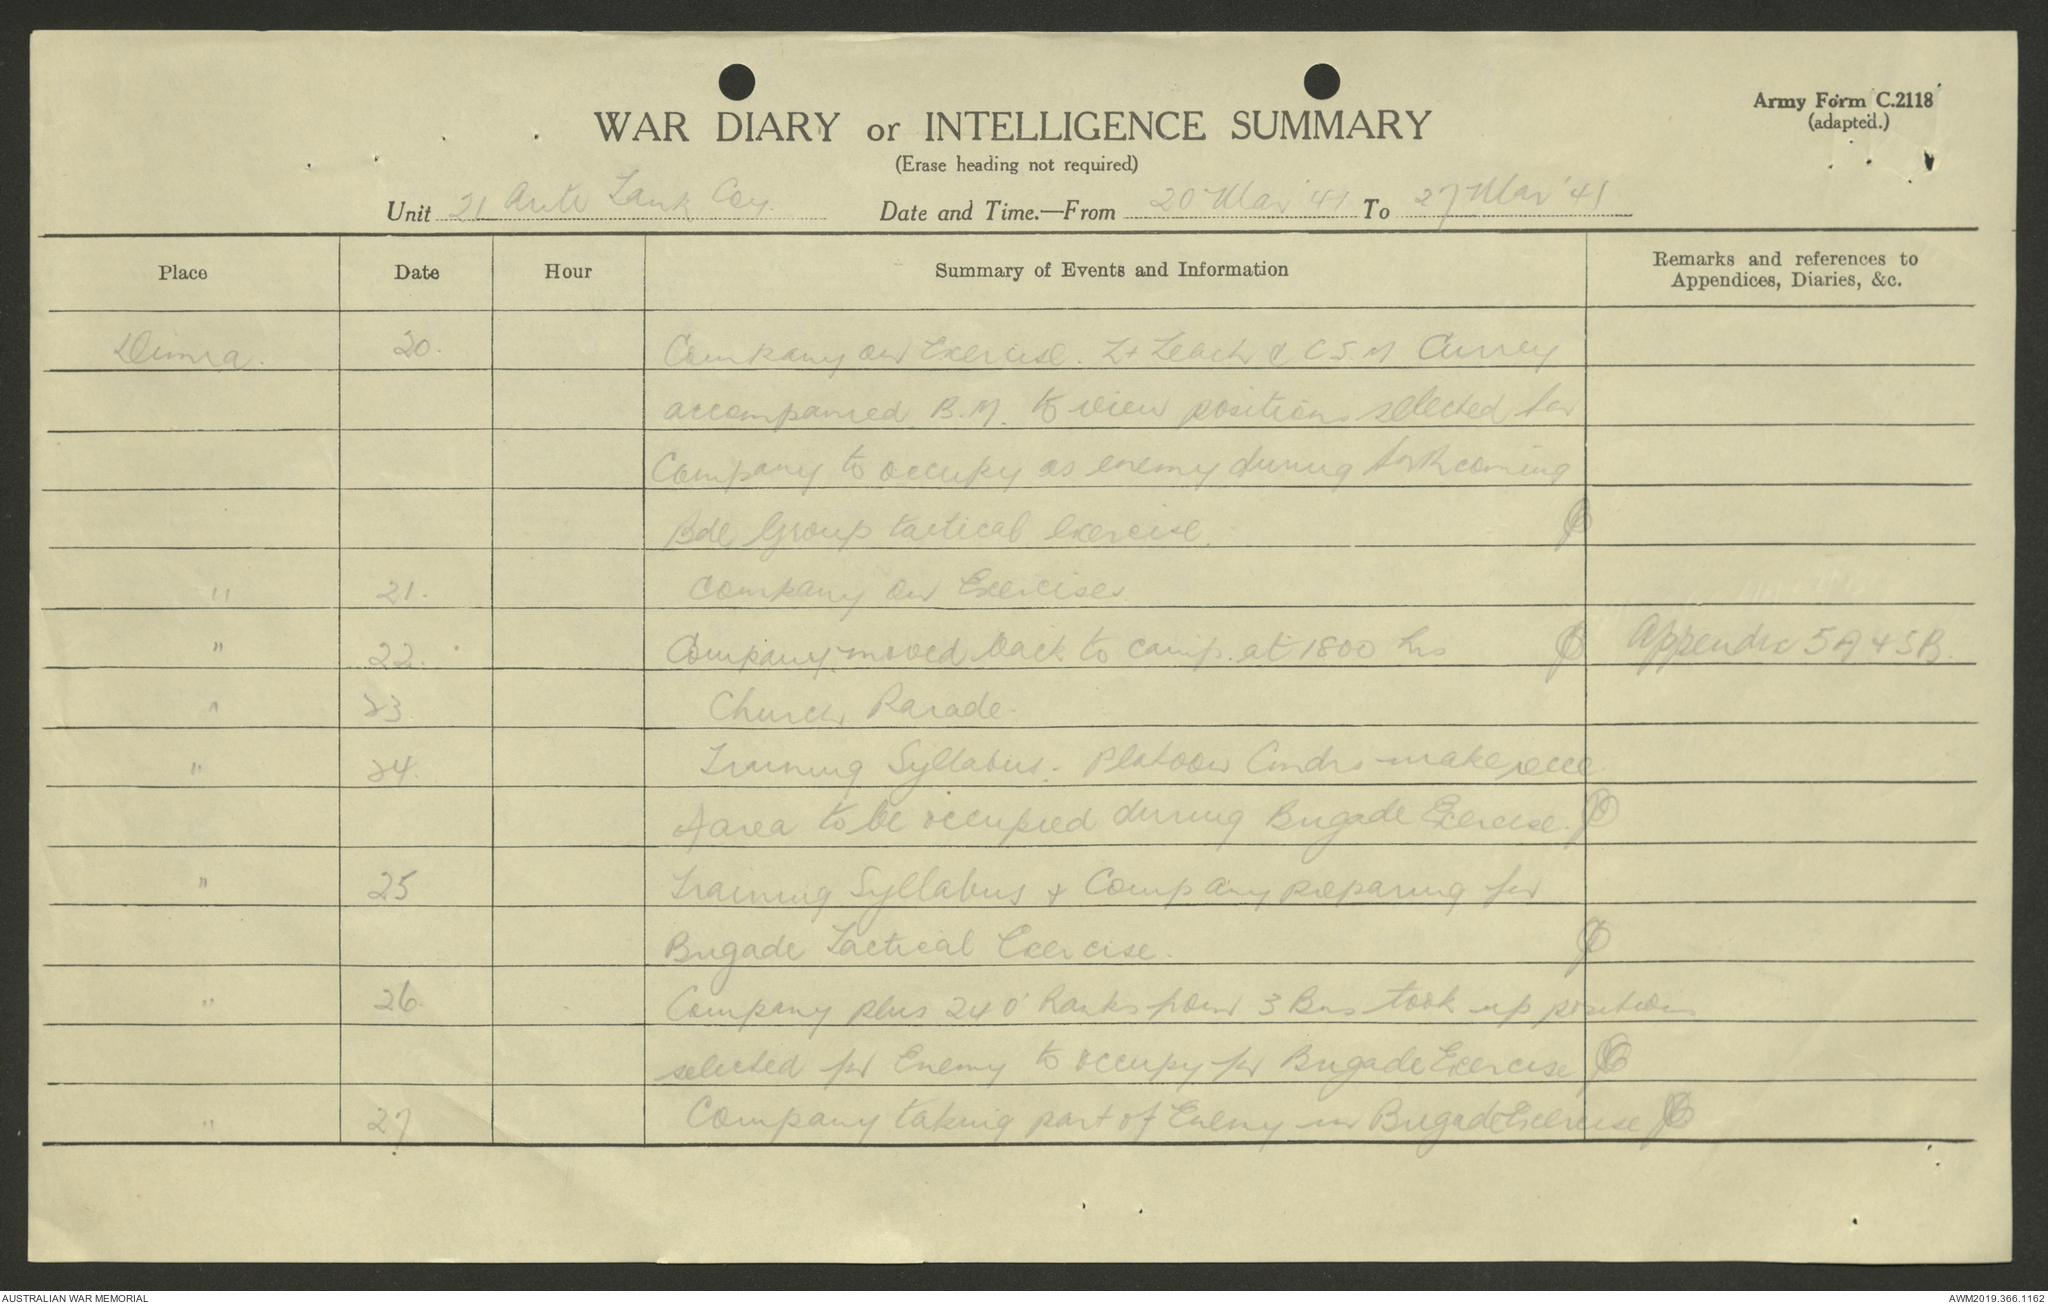 Army Form C.2118
(adapted.)
WAR DIARY or INTELLIGENCE SUMMARY
(Erase heading not required)
Unit 21 Anti Tank Coy. Date and Time.—From 20 Mar '41 To 27 Mar '41
Place Date Hour Summary of Events and Information Remarks and references to
Appendices, Diaries, &c.
Dimra. 20. Company on Exercise. Lt Leach & C.S.M Currey
accompanied B.M. to view positions selected for
Company to occupy as enemy during forthcoming
Bde Group tactical exercise.
" 21. Company on Exercises
" 22. Company moved back to camp at 1800 hrs Appendix 5A & 5B.
" 23 Church Parade.
" 24. Training Syllabus. Platoon Cmdrs make recce
Area to be occupied during Brigade Exercise.
" 25 Training Syllabus & Company preparing for
Brigade Tactical Exercise.
" 26. Company plus 240 Ranks from 3 Bns took up positions
selected for Enemy to occupy for Brigade Exercise
" 27 Company taking part of Enemy in Brigade Exercise
AUSTRALIAN WAR MEMORIAL AWM2019.366.1162